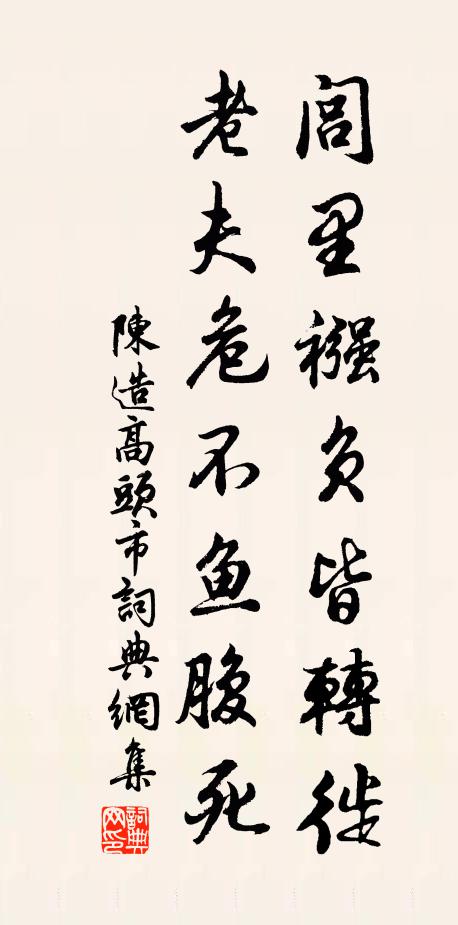 閭里襁负皆轉徙
老夫危不鱼腹死
陳造高頭市詞典網集
詞典網印